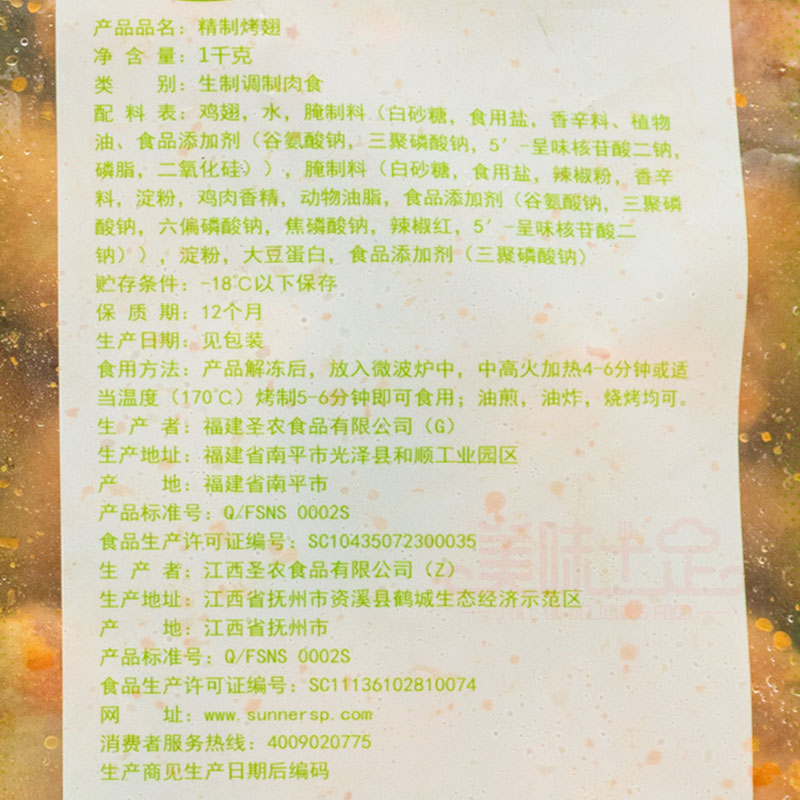 产品品名：精制烤翅
净 含 量：1千克
类 别：生制调制肉食
配 料 表：鸡翅，水，腌制料（白砂糖，食用盐，香辛料、植物
油、食品添加剂（谷氨酸钠，三聚磷酸钠，5′-呈味核苷酸二钠，
磷脂，二氧化硅）），腌制料（白砂糖，食用盐，辣椒粉，香辛
料，淀粉，鸡肉香精，动物油脂，食品添加剂（谷氨酸钠，三聚磷
酸钠，六偏磷酸钠，焦磷酸钠，辣椒红，5′-呈味核苷酸二
钠）），淀粉，大豆蛋白，食品添加剂（三聚磷酸钠）
贮存条件：-18℃以下保存
保 质 期：12个月
生产日期：见包装
食用方法：产品解冻后，放入微波炉中，中高火加热4-6分钟或适
当温度（170℃）烤制5-6分钟即可食用；油煎，油炸，烧烤均可。
生 产 者：福建圣农食品有限公司（G）
生产地址：福建省南平市光泽县和顺工业园区
产 地：福建省南平市
产品标准号：Q/FSNS 0002S
食品生产许可证编号：SC10435072300035
生 产 者：江西圣农食品有限公司（Z）
生产地址：江西省抚州市资溪县鹤城生态经济示范区
产 地：江西省抚州市
产品标准号：Q/FSNS 0002S
食品生产许可证编号：SC11136102810074
网 址：www.sunnersp.com
消费者服务热线：4009020775
生产商见生产日期后编码
美味十足